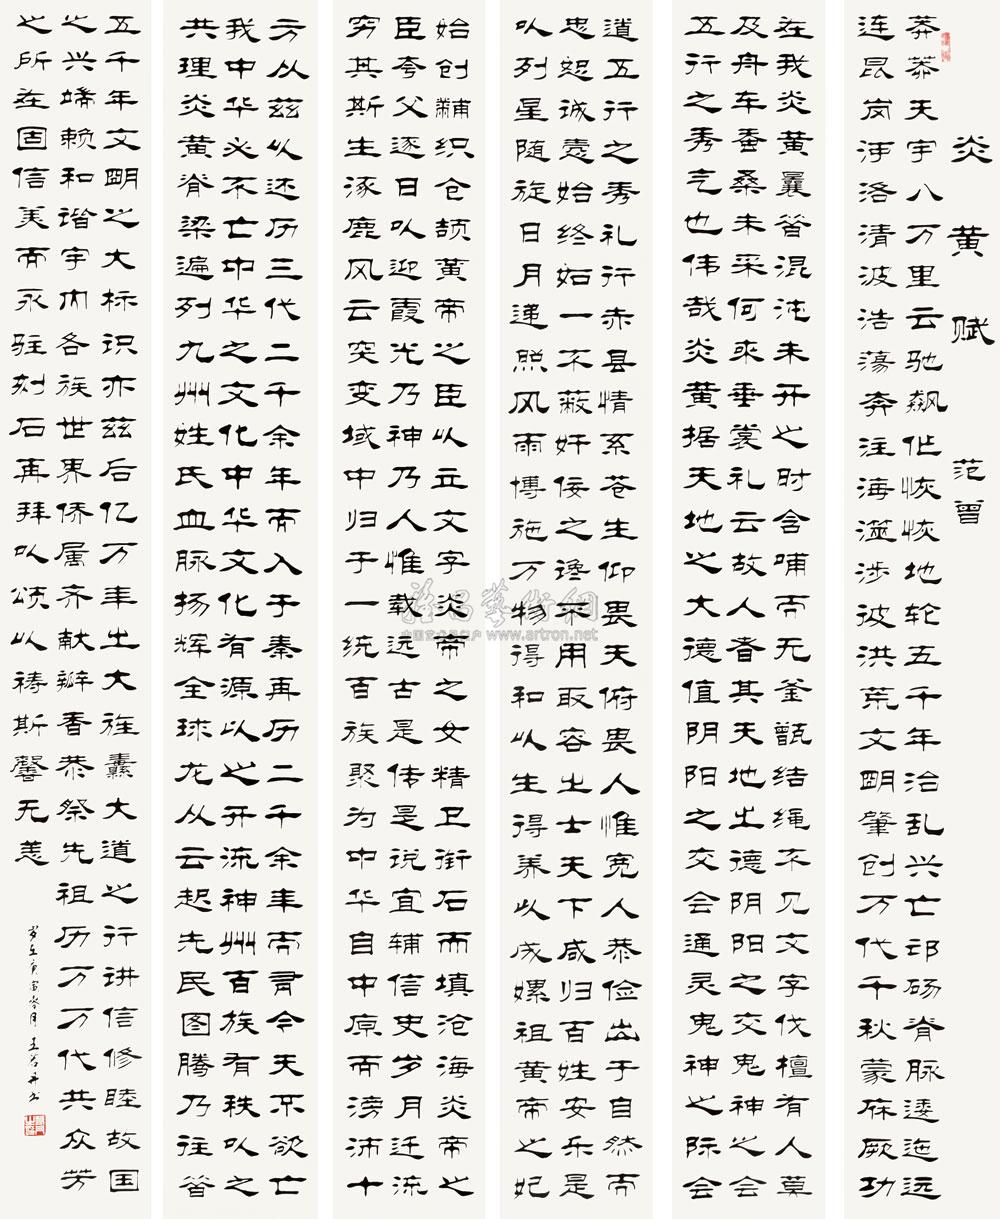 炎黄赋 范曾
莽莽天宇八万里云驰飙作恢恢地轮五千年治乱兴亡邙砀脊脉逶迤远
连昆岗沔洛清波浩荡奔注海滋涉彼洪荒文明肇创万代千秋蒙庥厥功
在我炎黄曩昔混沌未开之时含哺而无釜甑结绳不见文字伐檀有人莫
及舟车蚕桑未采何来垂裳礼云故人者其天地之德阴阳之交鬼神之会
五行之秀气也伟哉炎黄据天地之大德值阴阳之交会通灵鬼神之际会
道五行之秀礼行赤县情系苍生仰畏天俯畏人惟宽人恭俭出于自然而
忠恕诚悫始终如一不蔽奸佞之谗不用取容之士天下咸归百姓安乐是
以列星随旋日月递照风雨博施万物得和以生得养以成嫘祖黄帝之妃
始创黼织仓颉黄帝之臣以立文字炎帝之女精卫衔石而填沧海炎帝之
臣夸父逐日以迎霞光乃神乃人惟载远古是传是说宜辅信史岁月迁流
穷其斯生涿鹿风云突变域中归于一统百族聚为中华自中原而滂沛十
方从兹以还历三代二千余年而入于秦再历二千余年而有今天不欲亡
我中华必不亡中华之文化中华文化有源以之开流神州百族有秩以之
共理炎黄脊梁遍列九州姓氏血脉扬辉全球龙从云起先民图腾乃往昔
五千年文明之大标识亦兹后亿万年之大旌纛大道之行讲信修睦故国
之兴端赖和谐宇内各族世界侨属齐献瓣香恭祭先祖历万万代共众芳
之所在固信美而永驻刻石再拜以颂以祷斯馨无恙
岁在庚寅冬月
雅昌藝術網
www.artron.net